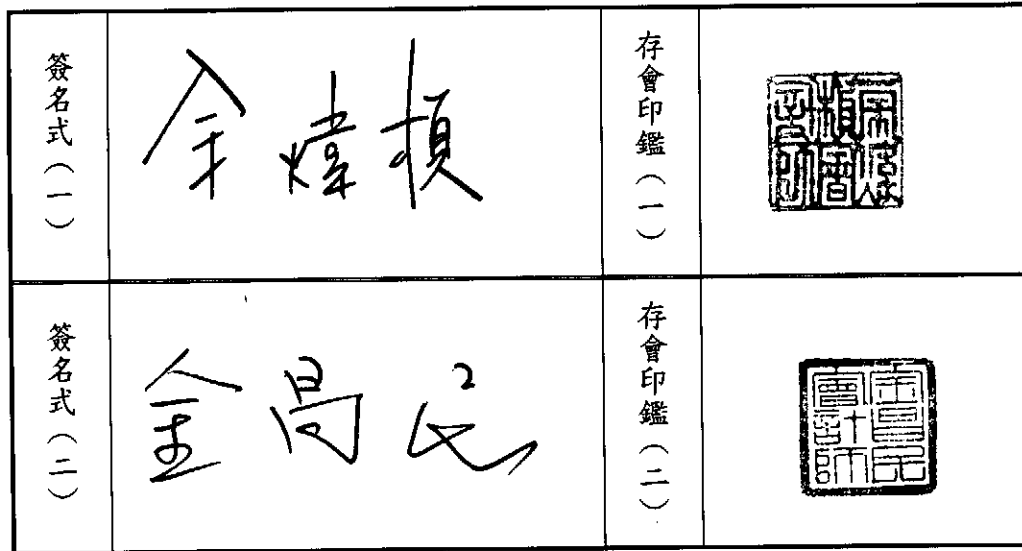 簽名式（一）
余煒楨
存會印鑑（一）
余煒楨會計師
簽名式（二）
金昌民
存會印鑑（二）
金昌民會計師